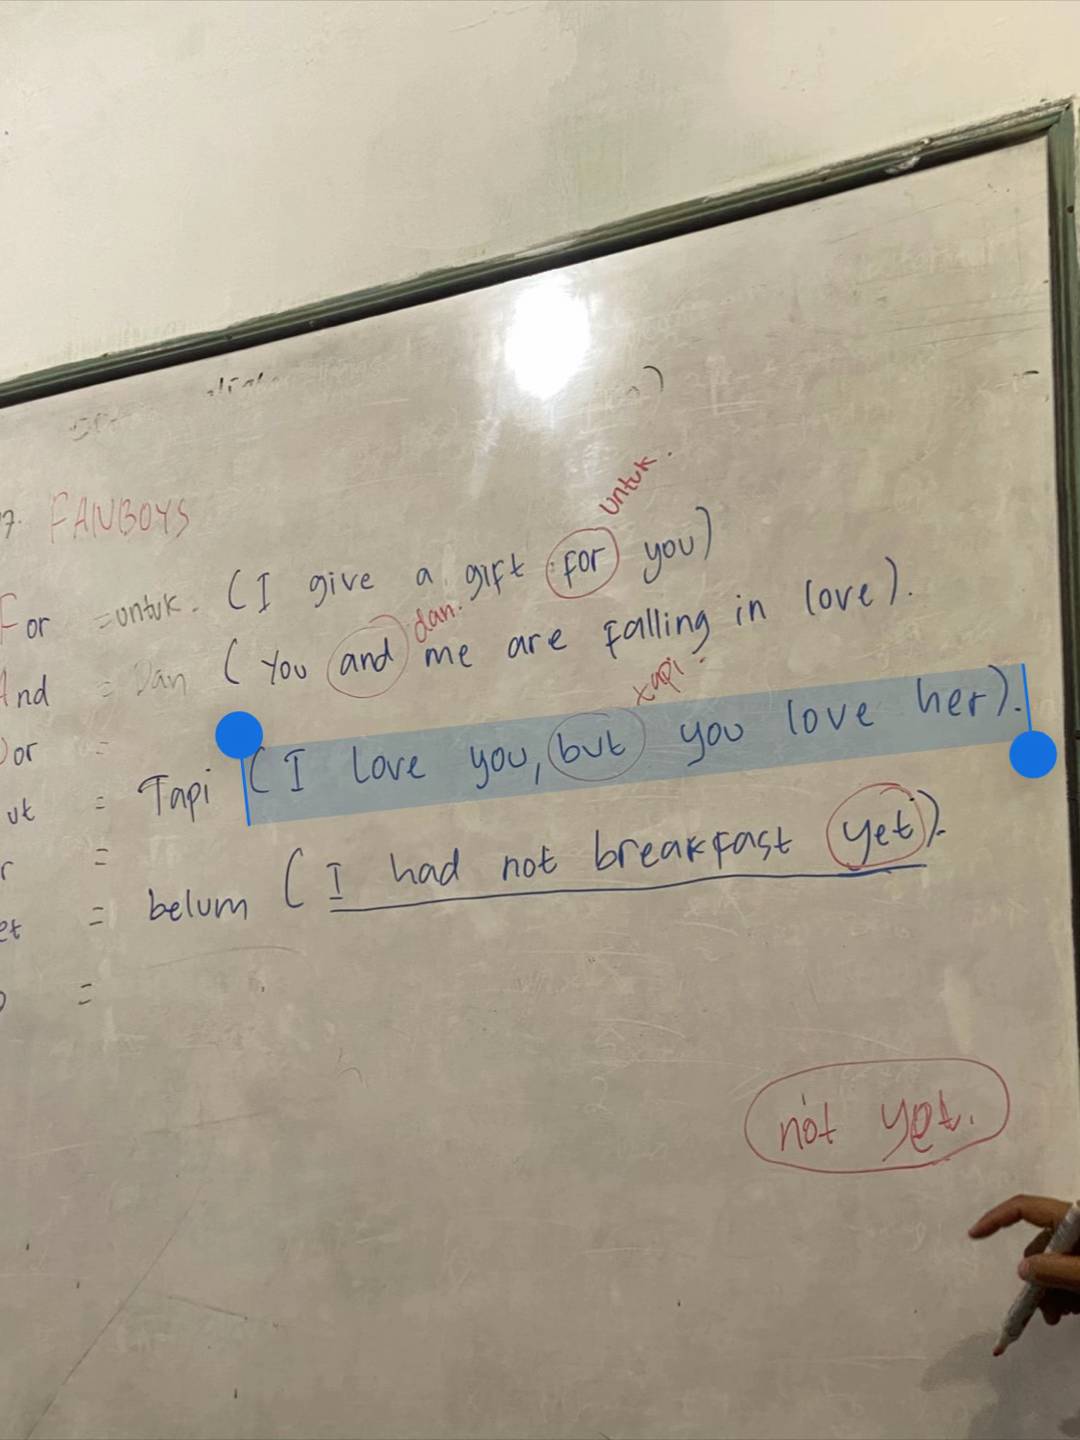 7. FANBOYS
untuk.
For = untuk. (I give a gift for you)
dan.
And = Dan (You and me are falling in love).
tapi.
or =
ut = Tapi (I love you, but you love her).
r =
et = belum (I had not breakfast yet).
=
not yet.